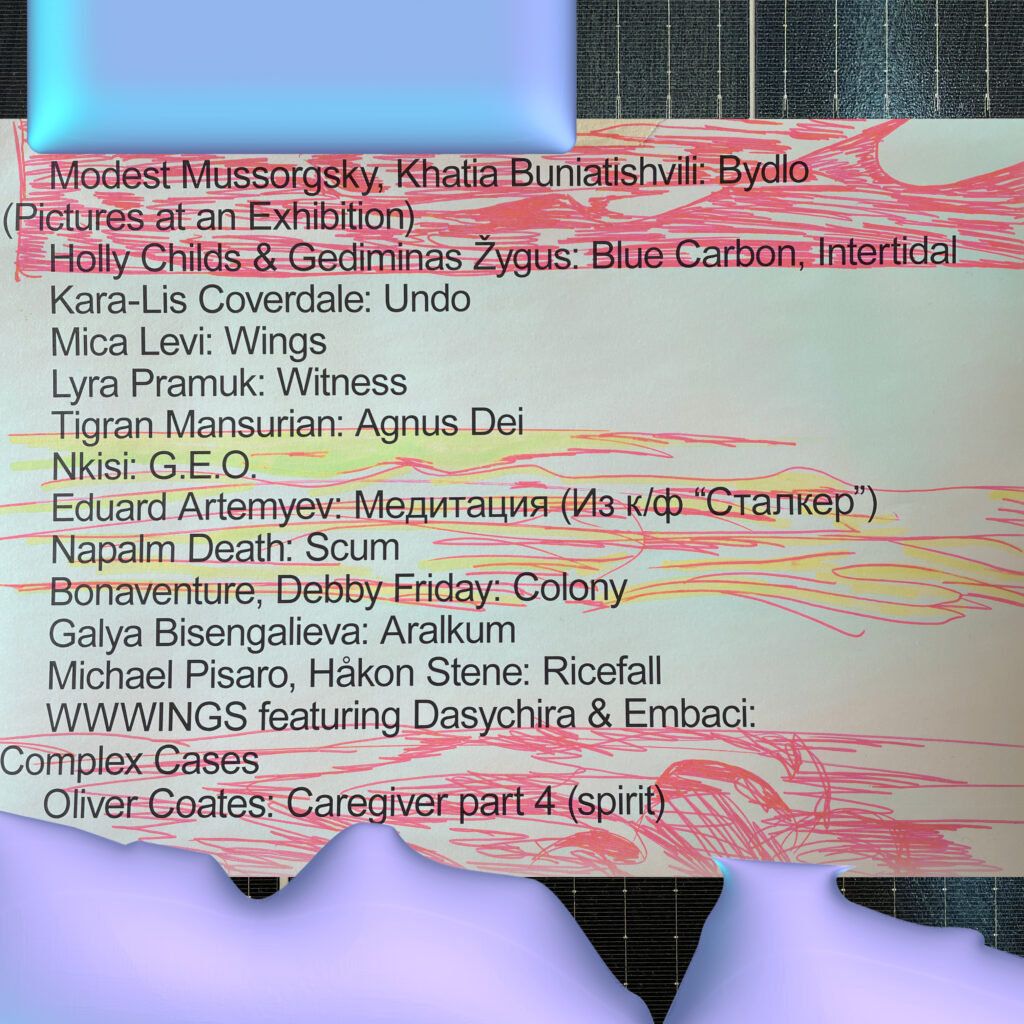 Modest Mussorgsky, Khatia Buniatishvili: Bydlo
(Pictures at an Exhibition)
Holly Childs & Gediminas Žygus: Blue Carbon, Intertidal
Kara-Lis Coverdale: Undo
Mica Levi: Wings
Lyra Pramuk: Witness
Tigran Mansurian: Agnus Dei
Nkisi: G.E.O.
Eduard Artemyev: Медитация (Из к/ф “Сталкер”)
Napalm Death: Scum
Bonaventure, Debby Friday: Colony
Galya Bisengalieva: Aralkum
Michael Pisaro, Håkon Stene: Ricefall
WWWINGS featuring Dasychira & Embaci:
Complex Cases
Oliver Coates: Caregiver part 4 (spirit)